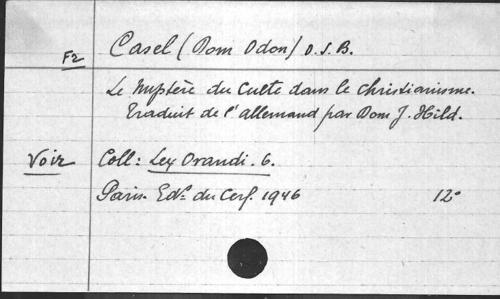 F2
Casel (Dom Odon) O.S.B.
Le Mystère du Culte dans le Christianisme.
Traduit de l'allemand par Dom J. Hild.
Voir Coll: Lex Orandi. 6.
Paris. Edns du Cerf. 1946 12°